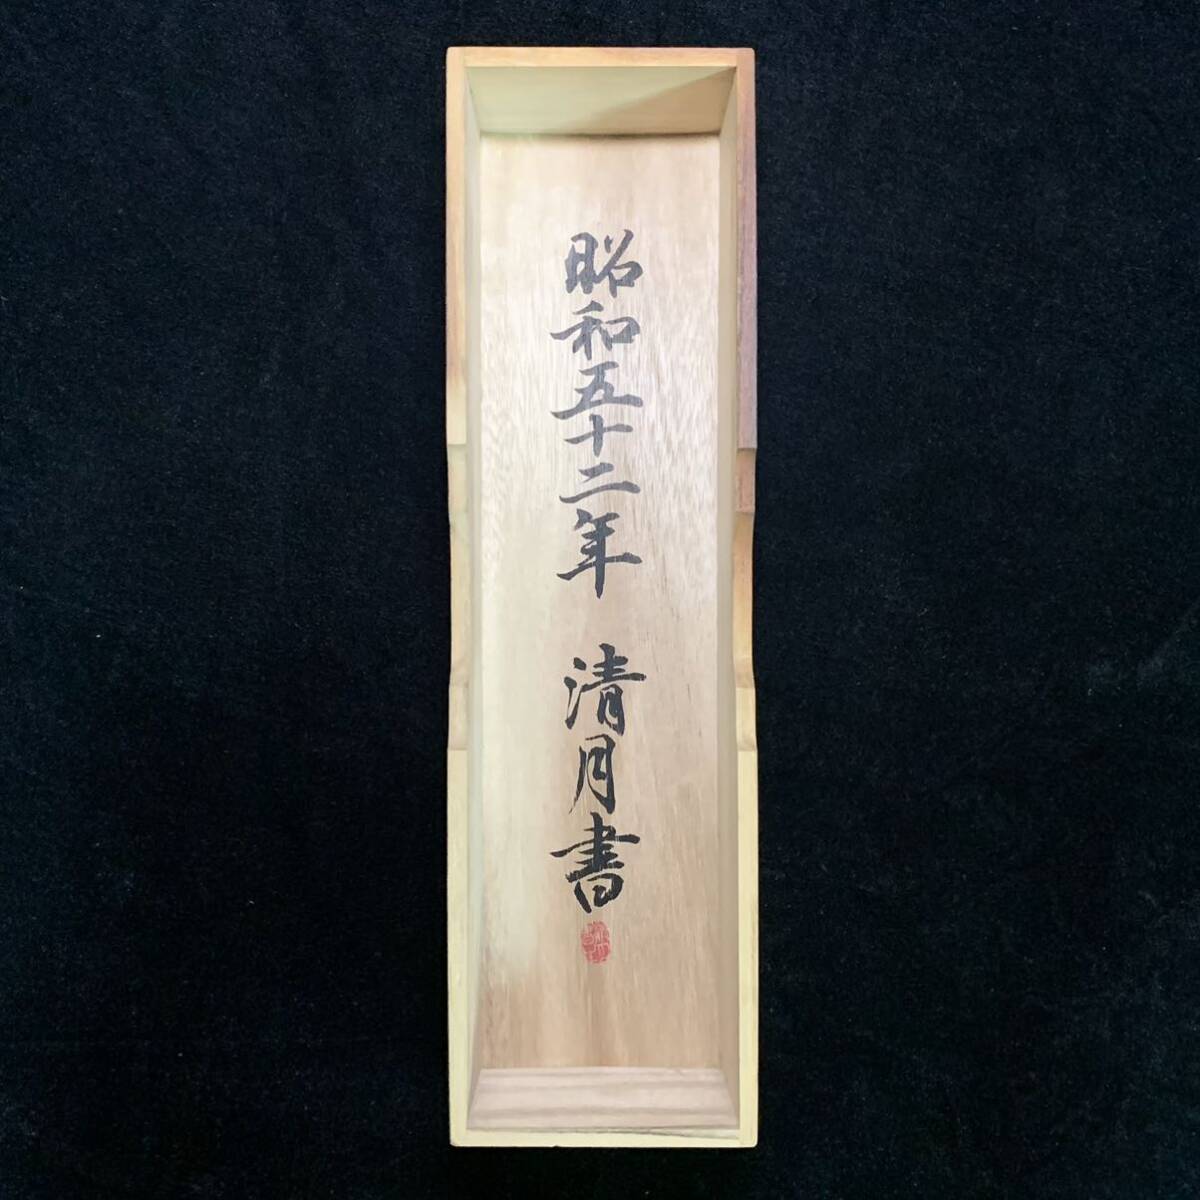 昭和五十二年 清月書